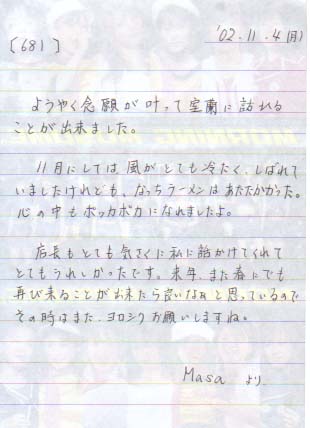 [681]
'02.11.4(月)
ようやく念願が叶って室蘭に訪れる
ことが出来ました。
11月にしては、風がとても冷たく、しばれて
いましたけれども、なっちラーメンはあたたかかった。
心の中もポッカポカになれましたよ。
店長もとても気さくに私に話かけてくれて
とてもうれしかったです。来年、また春にでも
再び来ることが出来たら良いなぁと思っているので
その時はまた、ヨロシクお願いしますね。
Masa より